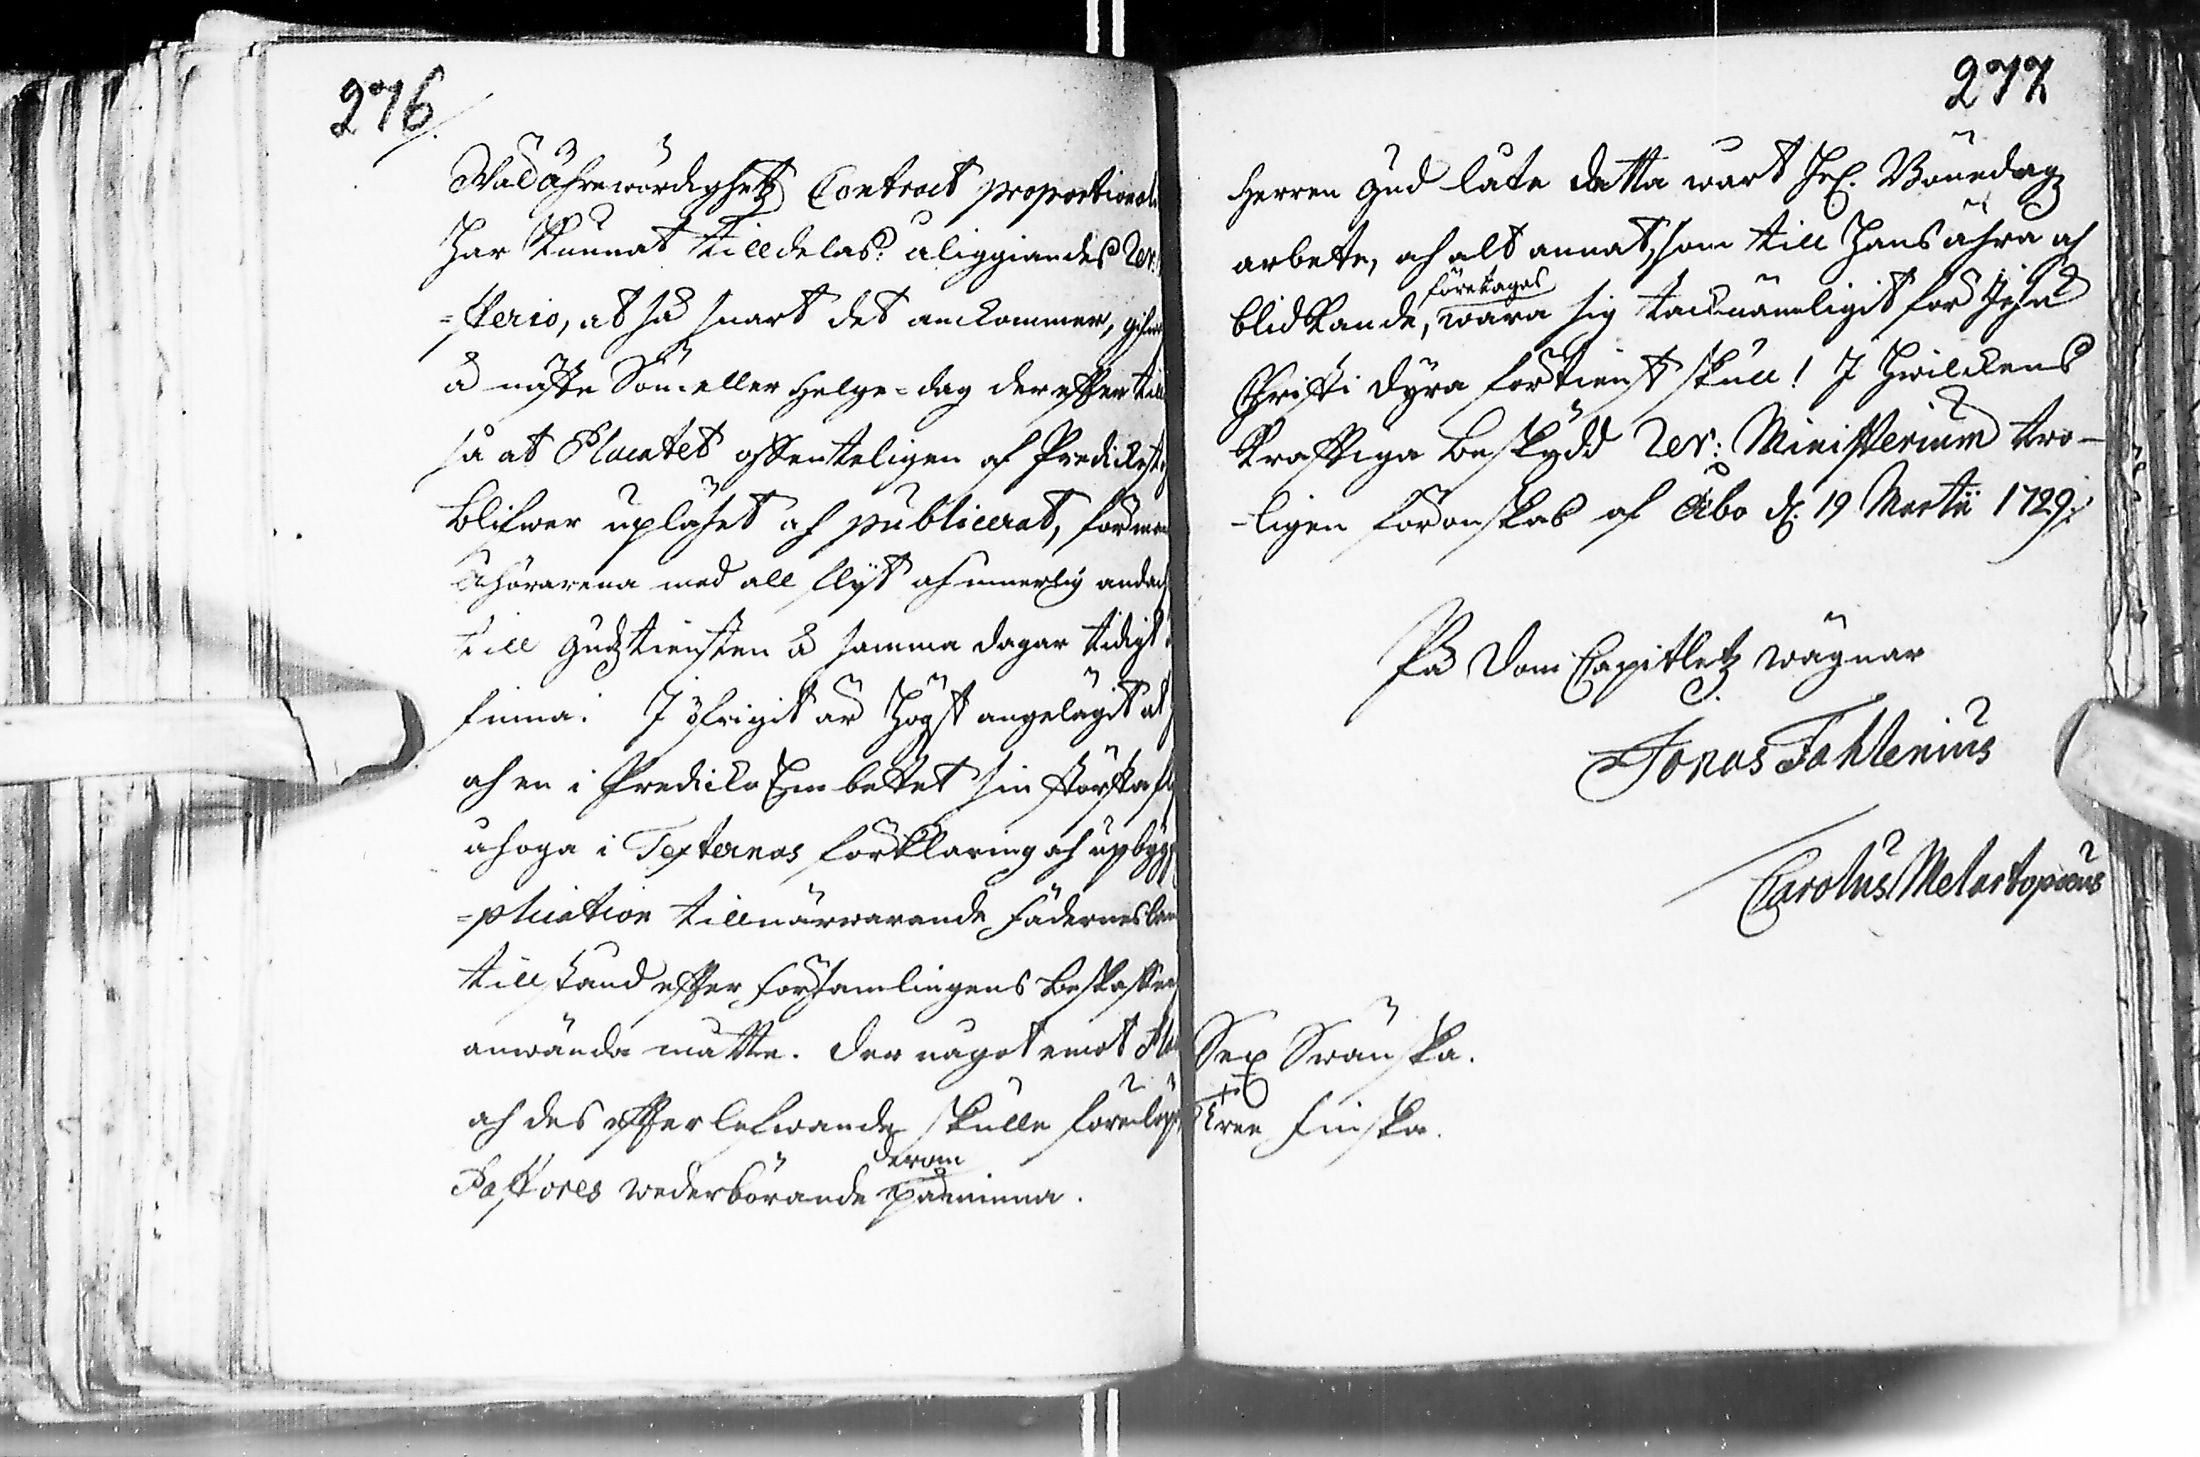 276/.
Wälährewördighetz Contract proportionali
har kunnat tilldelas. åliggiandes Ven:
=sterio, at så snart det ankommer, gifwa
å näste Sön- eller Helge-dag der effter till
så at Placatet offenteligen af Predickst
blifwer upläset och publicerat, förman
åhörarena med all flijt och innerlig andach
till gudztiensten å samma dagar tidigt
finna. I öfrigit är högst angelägit at
och en i Predicko Embettet sin största fl
åhoga i Texternas förklaring och upbygg
=plication till närwarande Fäderneslan
tillstånd effter församlingens beskaffen
anwända måtte. Der något emot Pla
och des effterlefwande skulle förelöp
Pastores wederbörande derom påminna.
277
Herren gud låte detta wårt Hel. Bönedagz
arbete, och alt annat, som till Hans ähra och
blidkande, företages wara sig tacknämeligit för Jesu
Christi dyra förtienst skull! I Hwilckens
krafftiga beskydd Ven: Ministerium tro-
-ligen förenskas af Åbo d. 19 Martii 1729.
På Dom Capitletz wägnar
Jonas Fahlenius
Carolus Melartopæus
Sex Swänska.
Tree Finska.